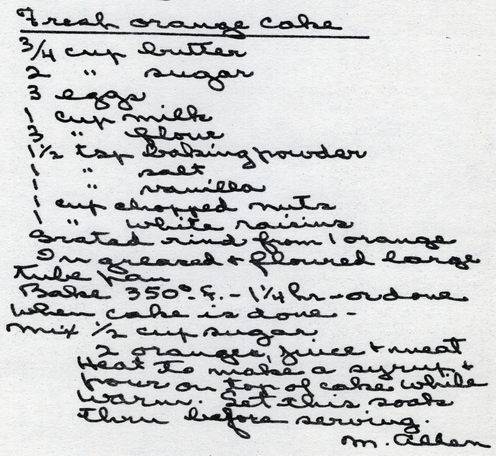 Fresh orange cake
3/4 cup butter
2 " sugar
3 eggs
1 cup milk
3 " flour
1 1/2 tsp baking powder
1 " salt
1 " vanilla
1 cup chopped nuts
1 " white raisins
Grated rind from 1 orange
In greased + floured large
tube pan
Bake 350° F. - 1 1/4 hr - or done
When cake is done -
Mix 1/2 cup sugar
2 oranges, juice + meat
Heat to make a syrup +
pour on top of cake while
warm. Let this soak
thru before serving.
M. Allen